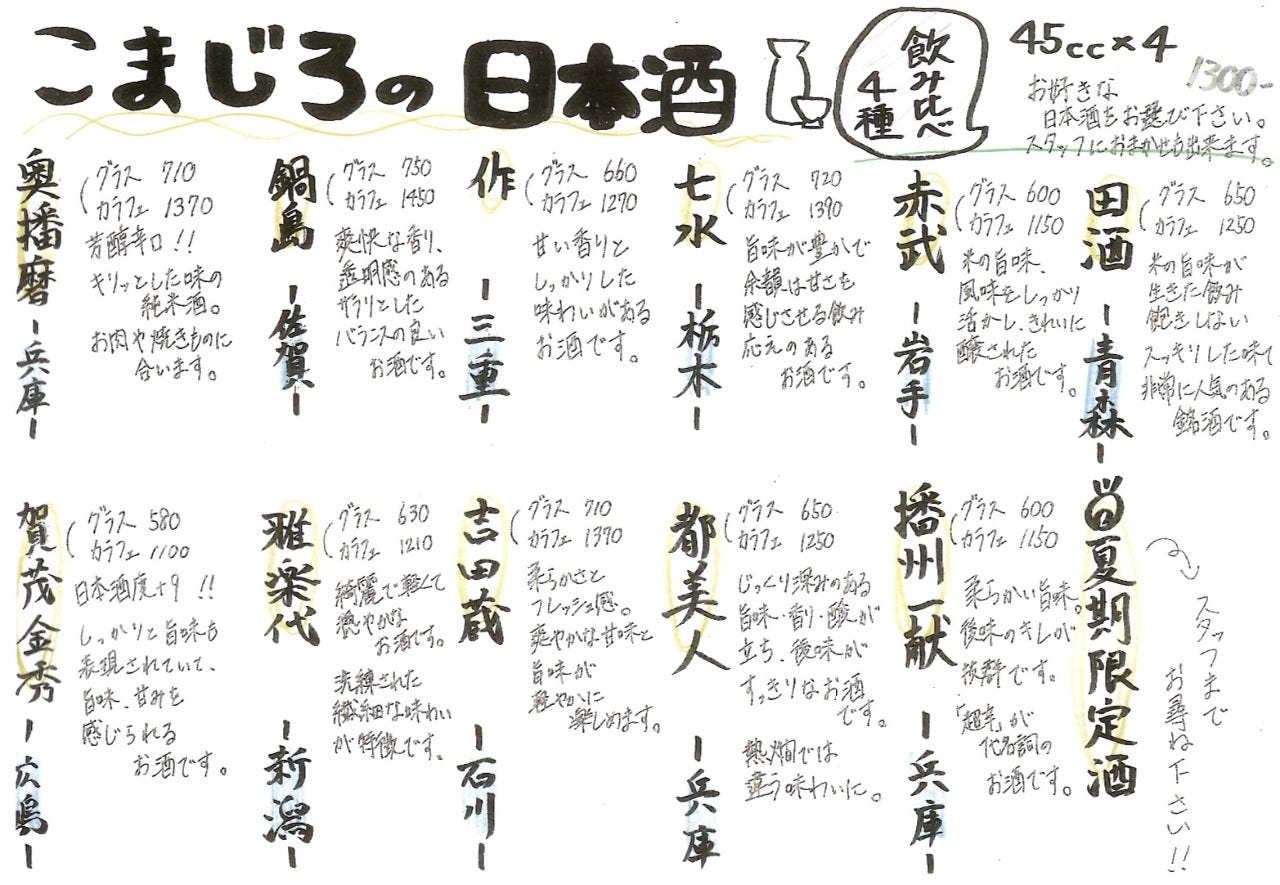 こまじろの日本酒
飲み比べ
4種
45cc×4
1300-
お好きな
日本酒をお選び下さい。
スタッフにおまかせも出来ます。
田酒
-青森-
グラス 650
カラフェ 1250
米の旨味が
生きた飲み
飽きしない
スッキリした味で
非常に人気のある
銘酒です。
赤武
-岩手-
グラス 600
カラフェ 1150
米の旨味、
風味をしっかり
活かし、きれいに
醸された
お酒です。
七水
-栃木-
グラス 720
カラフェ 1390
旨味が豊かで
余韻は甘さを
感じさせる飲み
応えのある
お酒です。
作
-三重-
グラス 660
カラフェ 1270
甘い香りと
しっかりした
味わいがある
お酒です。
鍋島
-佐賀-
グラス 750
カラフェ 1450
爽快な香り、
透明感のある
サラリとした
バランスの良い
お酒です。
奥播磨
-兵庫-
グラス 710
カラフェ 1370
芳醇辛口!!
キリッとした味の
純米酒。
お肉や焼きものに
合います。
夏期限定酒
スタッフまで
お尋ね下さい!!
播州一献
-兵庫-
グラス 600
カラフェ 1150
柔らかい旨味。
後味のキレが
抜群です。
「超辛」が
代名詞の
お酒です。
都美人
-兵庫-
グラス 650
カラフェ 1250
じっくり深みのある
旨味・香り・酸が
立ち、後味が
すっきりなお酒
です。
熱燗では
違う味わいに。
吉田蔵
-石川-
グラス 710
カラフェ 1370
柔らかさと
フレッシュ感。
爽やかな甘味と
旨味が
軽やかに
楽しめます。
雅楽代
-新潟-
グラス 630
カラフェ 1210
綺麗で軽くて
穏やかな
お酒です。
洗練された
繊細な味わい
が特徴です。
賀茂金秀
-広島-
グラス 580
カラフェ 1100
日本酒度+9 !!
しっかりと旨味も
表現されていて、
旨味、甘みを
感じられる
お酒です。